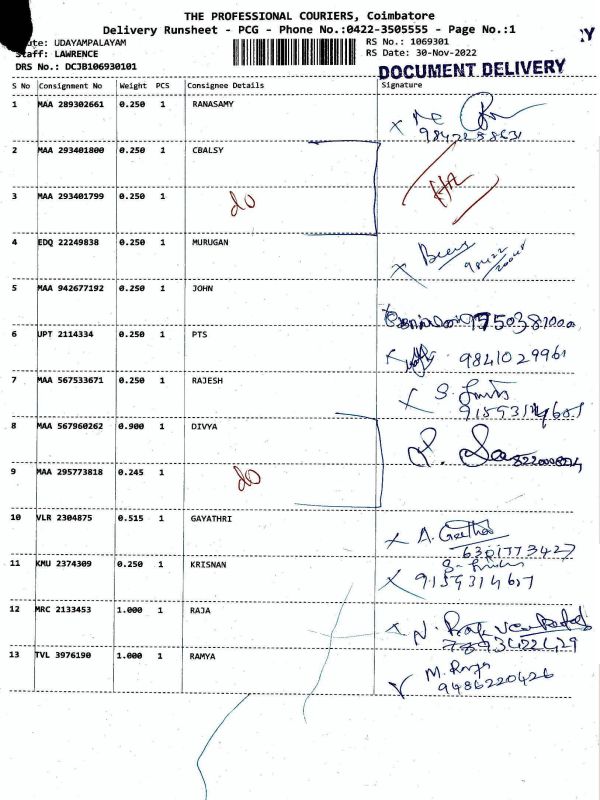 THE PROFESSIONAL COURIERS, Coimbatore
Delivery Runsheet - PCG - Phone No.:0422-3505555 - Page No.:1
UDAYAMPALAYAM RS No.: 1069301
Staff: LAWRENCE RS Date: 30-Nov-2022
DRS No.: DCJB106930101 DOCUMENT DELIVERY
S No Consignment No Weight PCS Consignee Details Signature
1 MAA 289302661 0.250 1 RANASAMY
2 MAA 293401800 0.250 1 CBALSY
3 MAA 293401799 0.250 1 do
4 EDQ 22249838 0.250 1 MURUGAN
5 MAA 942677192 0.250 1 JOHN
6 UPT 2114334 0.250 1 PTS 9841029961
7 MAA 567533671 0.250 1 RAJESH S.
8 MAA 567960262 0.900 1 DIVYA
9 MAA 295773818 0.245 1 do
10 VLR 2304875 0.515 1 GAYATHRI A. Geetha
6381773427
11 KMU 2374309 0.250 1 KRISNAN
9159314607
12 MRC 2133453 1.000 1 RAJA N.
7893422429
13 TVL 3976190 1.000 1 RAMYA M. Raja
9486220426